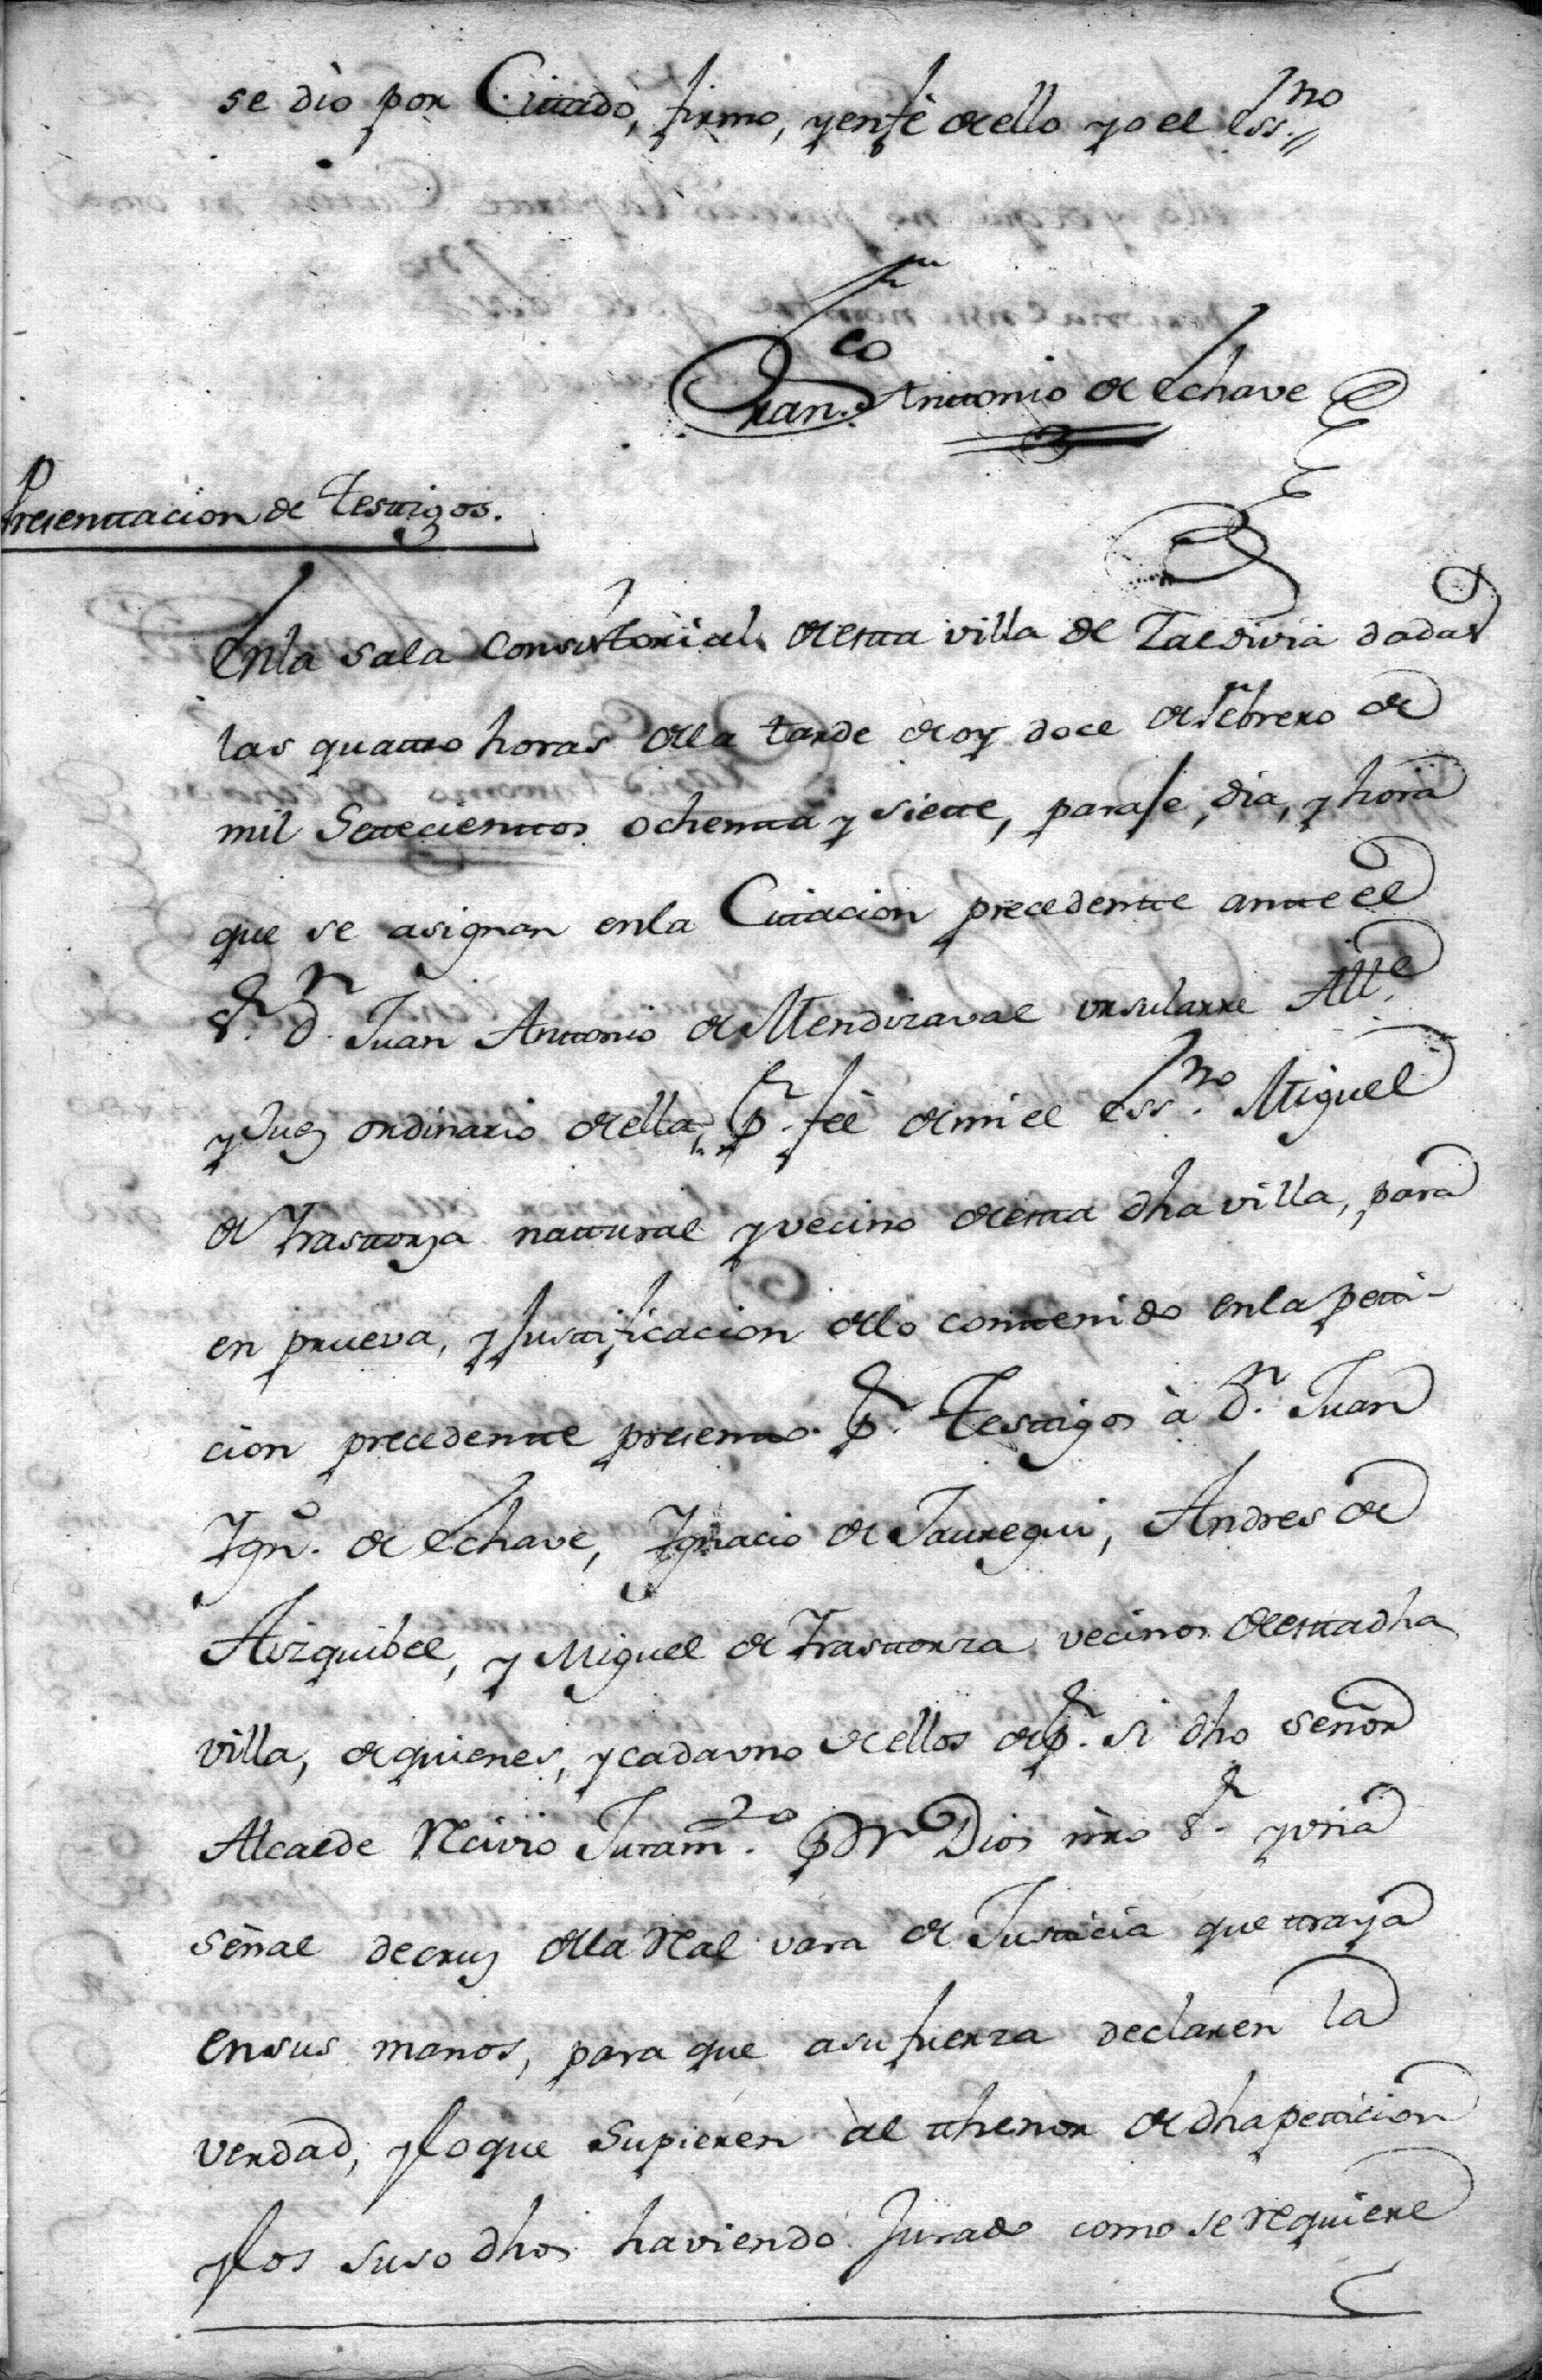 se diò por Cittado, firmo, y en fè de ello yo el Ess.no
Fran.co Anttonio de Echave
Presenttacion de Testtigos.
En la sala Consistorial de estta villa de Zaldivia dadas
las quattro horas de la tarde de oy doce de Febrero de
mil Settecienttos ochentta y siette, paraje, dia, y hora
que se asignan en la Cittacion precedentte antte el
S.r d.n Juan Anttonio de Mendizaval ursularre Alld.e
y Juez ordinario de ella, p.r feè de mi el Ess.no Miguel
de Irasttorza nattural y vecino de estta dha villa, para
en prueva, y Justtificacion de lo conttenido en la petti-
cion precedentte presentto p.r Testtigos à d.n Juan
Ign.o de Echave, Ignacio de Jauregui, Andres de
Aizquibel, y Miguel de Irasttorza vecinos de estta dha
villa, de quienes, y cada uno de ellos de p.r si dho señor
Alcalde Recivio Juram.to por Dios nro S.r y una
señal de cruz de la Real vara de Justticia que traya
en sus manos, para que a su fuerza declaren la
verdad, y lo que supieren àl thenor de dha petticion
y los suso dhos haviendo Jurado como se requiere